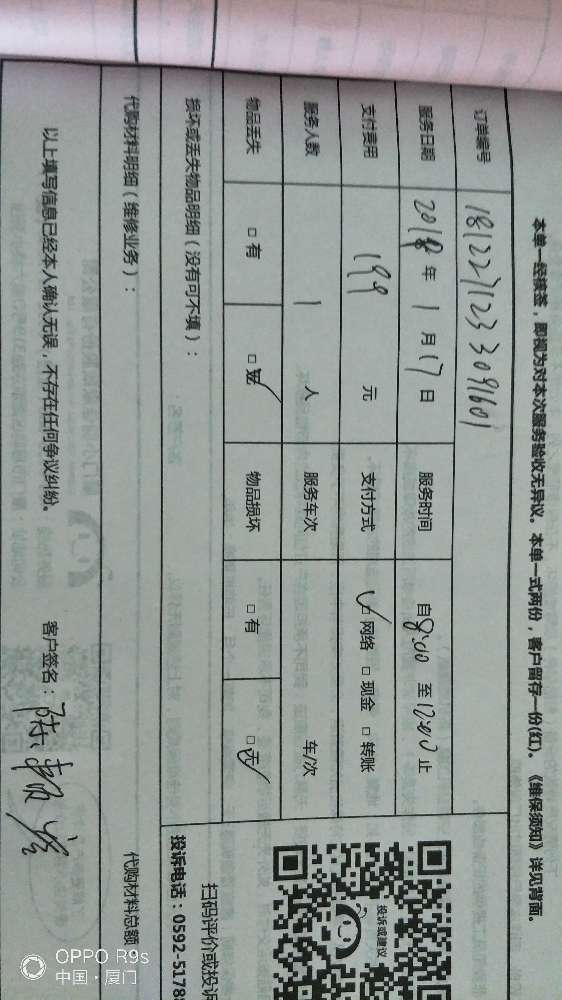 本单一经接签，即视为对本次服务验收无异议。本单一式两份，客户留存一份(红)。《维保须知》详见背面。
订单编号 181227123 3091601
服务日期 2018年 1月17日 服务时间 自8:00 至12:00止
支付费用 199 元 支付方式 ✓网络 □现金 □转账
服务人数 1 人 服务车次 车/次
物品丢失 □有 □无✓ 物品损坏 □有 □无✓
损坏或丢失物品明细（没有可不填）：
代购材料明细（维修业务）： 代购材料总额
以上填写信息已经本人确认无误，不存在任何争议纠纷。 客户签名：陈
投诉或建议
扫码评价或投诉
投诉电话：0592-5178
OPPO R9s
中国·厦门